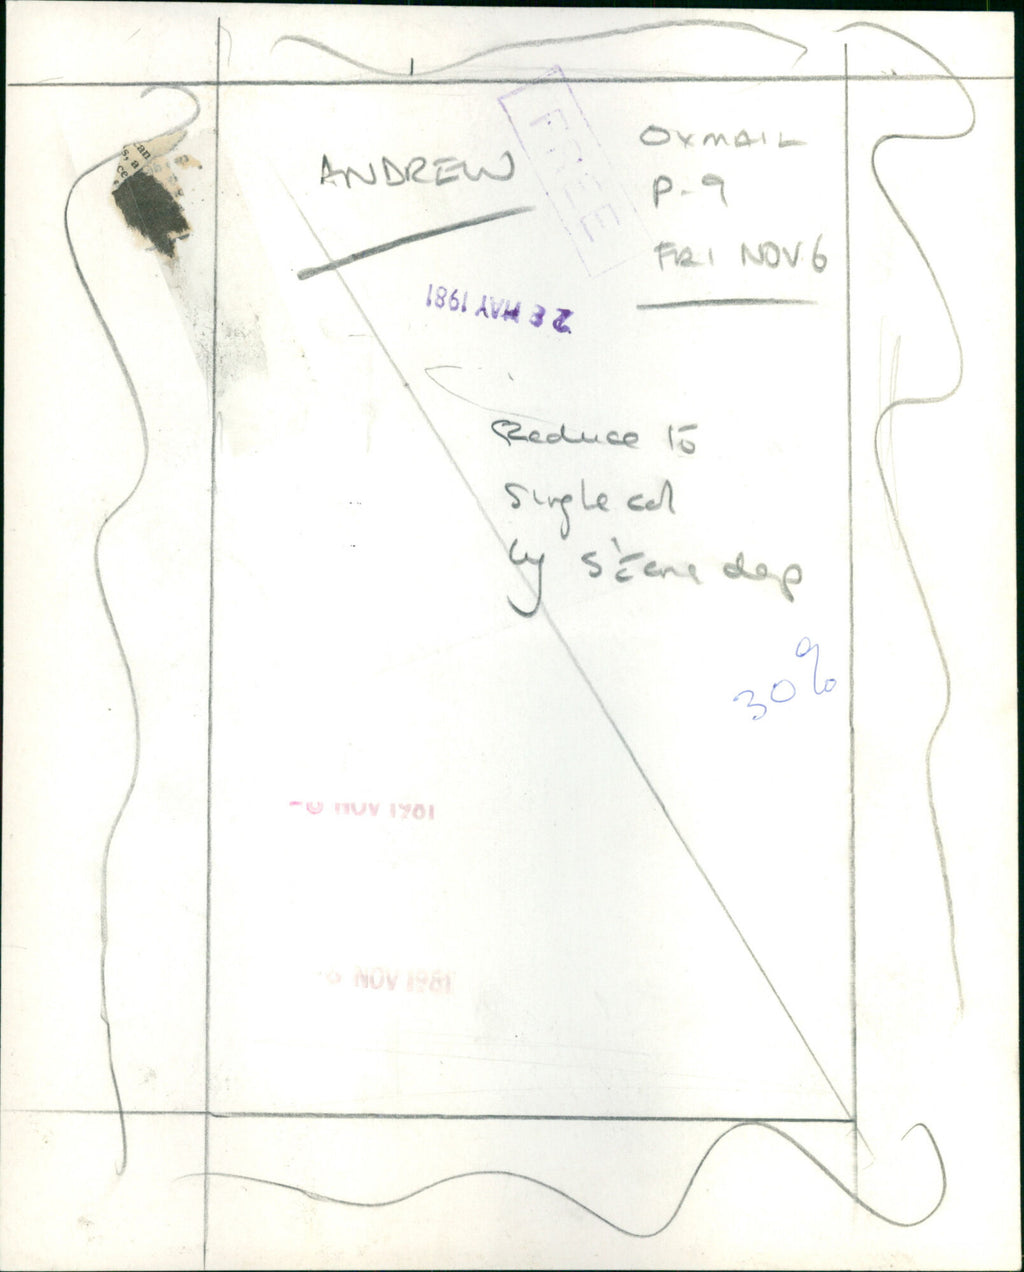 OXMAIL
ANDREW
FREE
P-9
FRI NOV 6
28 MAY 1981
Reduce to
single col
by
deep
30%
NOV 1981
6 NOV 1981